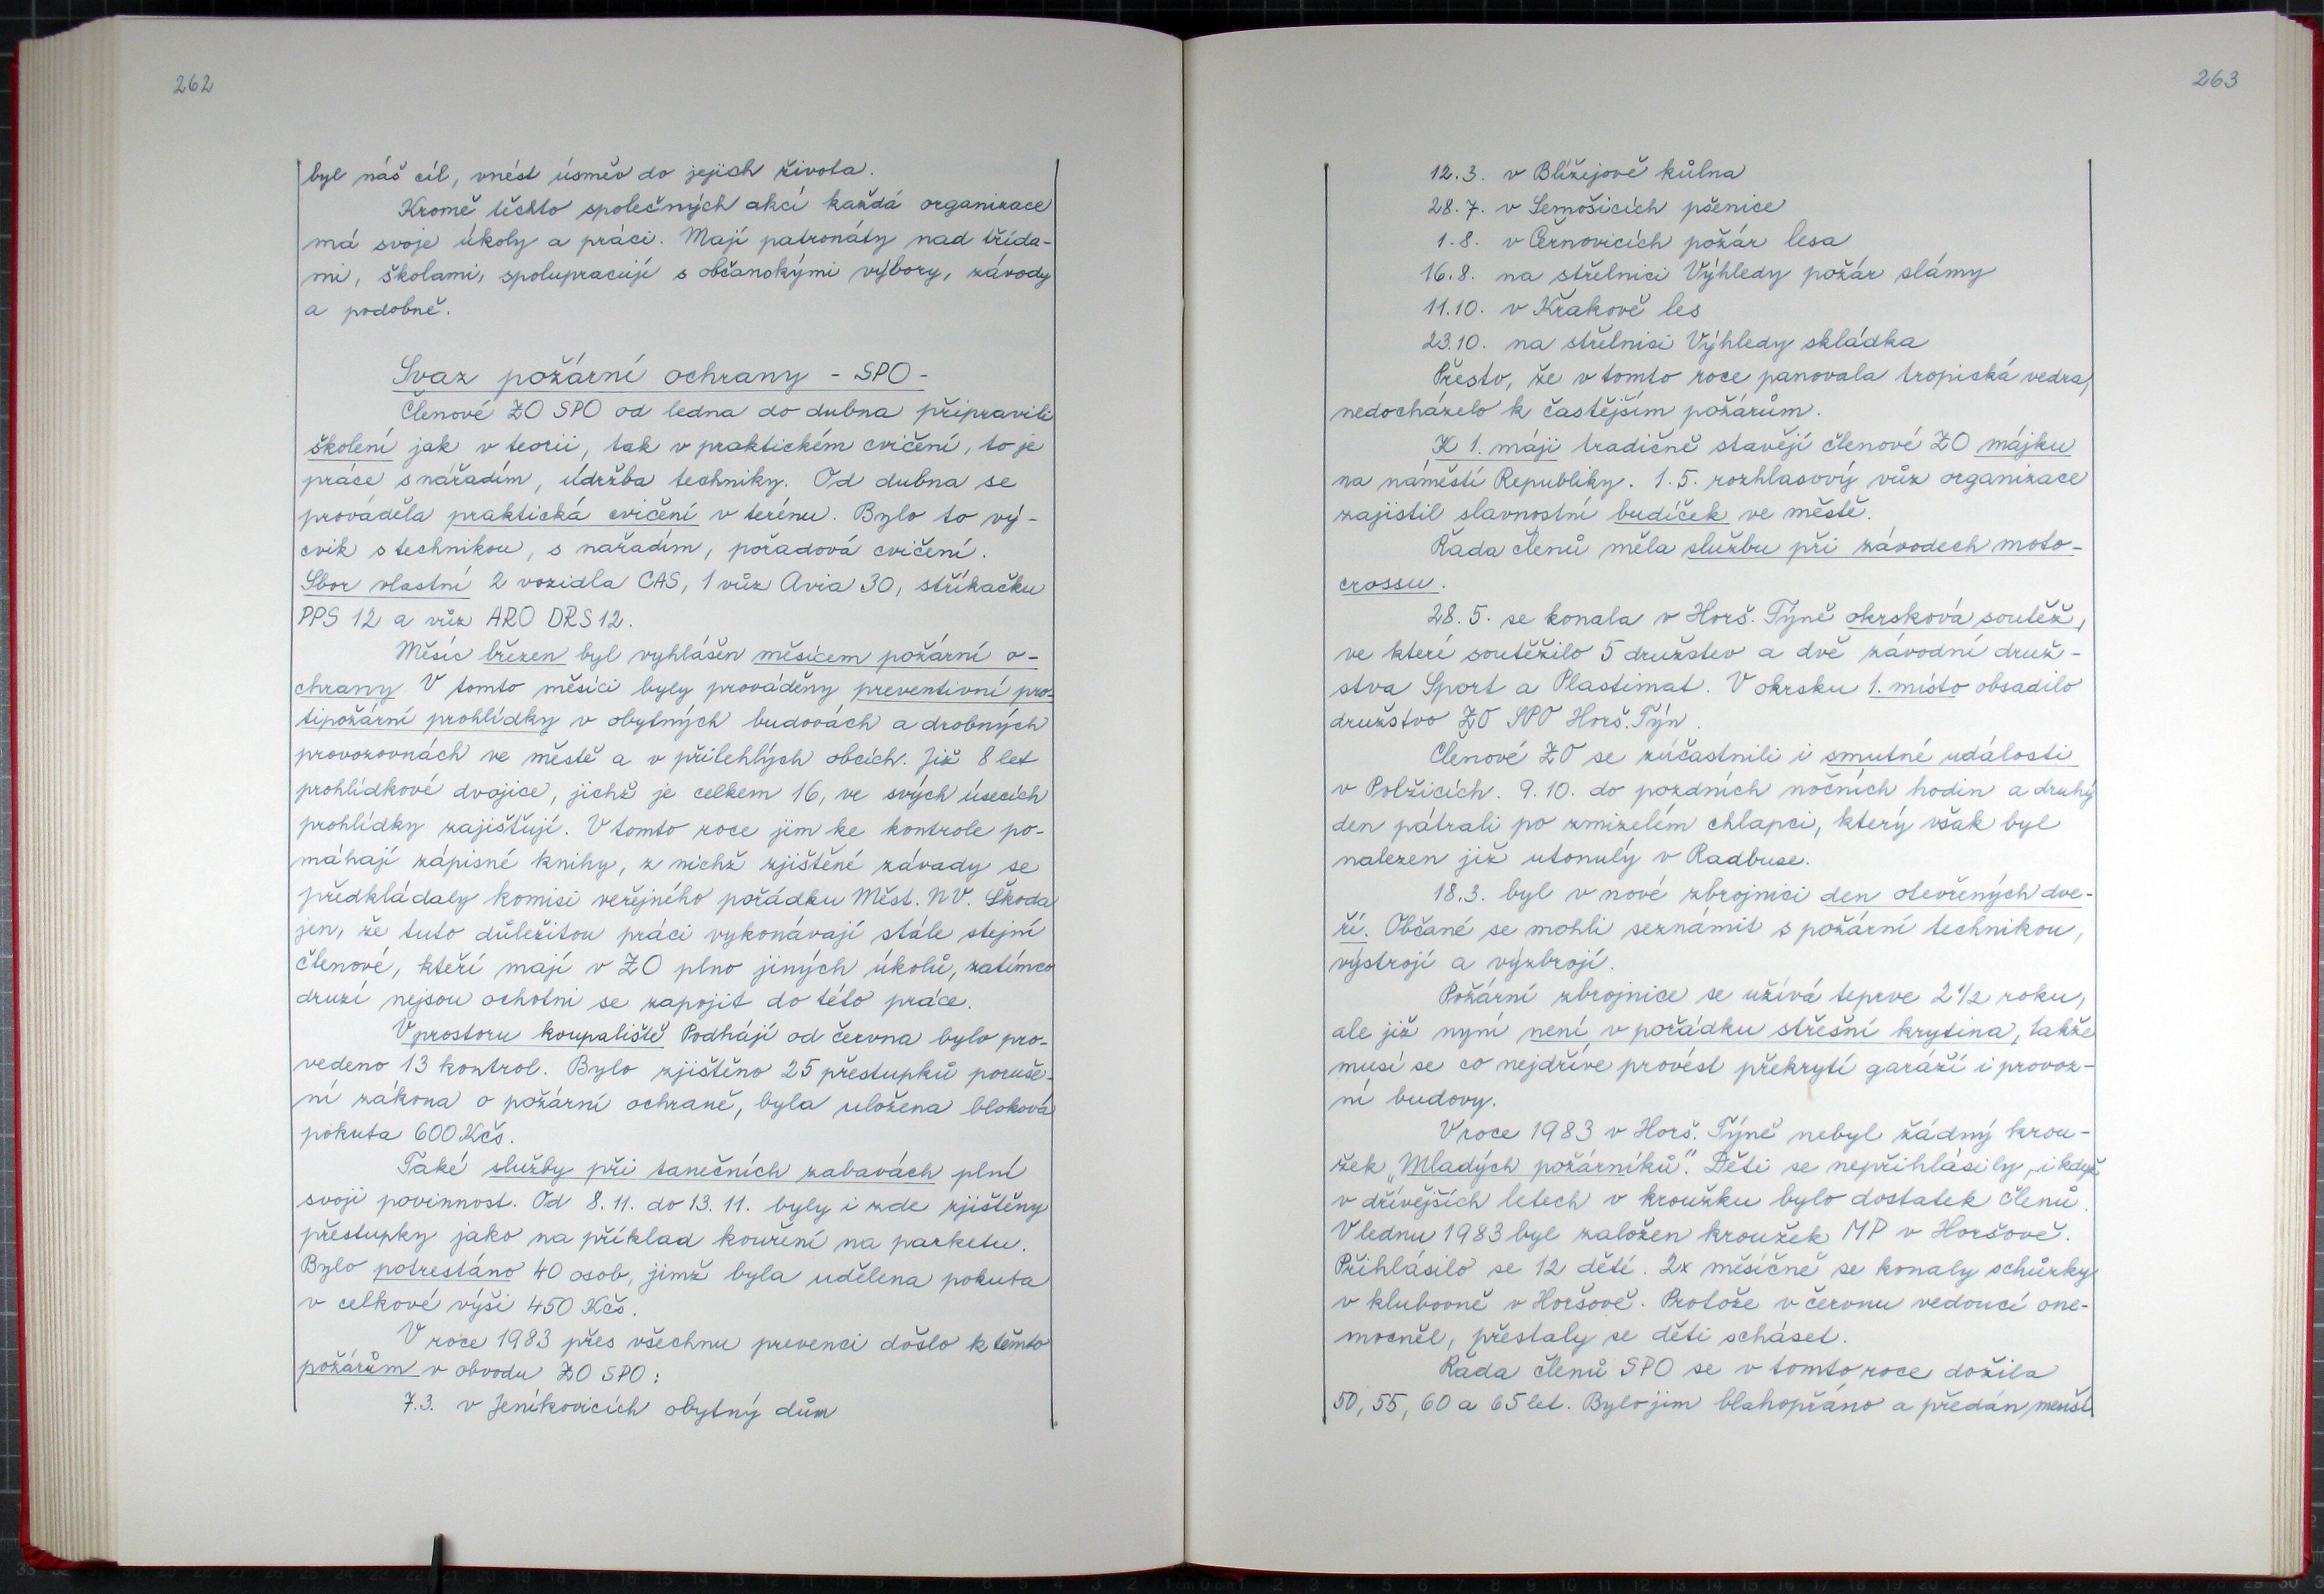 262
byl náš cíl, vnést úsměv do jejich života.
Kromě těchto společných akcí každá organizace
má svoje úkoly a práci. Mají patronáty nad třída-
mi, školami, spolupracují s občanskými výbory, závody
a podobně.
Svaz požární ochrany - SPO -
Členové ZO SPO od ledna do dubna připravili
školení jak v teorii, tak v praktickém cvičení, to je
práce s nářadím, údržba techniky. Od dubna se
prováděla praktická cvičení v terénu. Bylo to vý-
cvik s technikou, s nářadím, pořadová cvičení.
Sbor vlastní 2 vozidla CAS, 1 vůz Avia 30, stříkačku
PPS 12 a vůz ARO DRS 12.
Měsíc březen byl vyhlášen měsícem požární o-
chrany. V tomto měsíci byly prováděny preventivní pro-
tipožární prohlídky v obytných budovách a drobných
provozovnách ve městě a v přilehlých obcích. Již 8 let
prohlídkové dvojice, jichž je celkem 16, ve svých úsecích
prohlídky zajišťují. V tomto roce jim ke kontrole po-
máhají zápisné knihy, z nichž zjištěné závady se
předkládaly komisi veřejného pořádku Měst. NV. Škoda
jen, že tuto důležitou práci vykonávají stále stejní
členové, kteří mají v ZO plno jiných úkolů, zatímco
druzí nejsou ochotni se zapojit do této práce.
V prostoru koupaliště Podhájí od června bylo pro-
vedeno 13 kontrol. Bylo zjištěno 25 přestupků poruše-
ní zákona o požární ochraně, byla uložena bloková
pokuta 600 Kčs.
Také služby při tanečních zabavách plní
svoji povinnost. Od 8. 11. do 13. 11. byly i zde zjištěny
přestupky jako na příklad kouření na parketu.
Bylo potrestáno 40 osob, jimž byla udělena pokuta
v celkové výši 450 Kčs.
V roce 1983 přes všechnu prevenci došlo k těmto
požárům v obvodu ZO SPO:
7.3. v Jeníkovicích obytný dům
263
12.3. v Blížejově kůlna
28.7. v Semošicích pšenice
1.8. v Černovicích požár lesa
16.8. na střelnici Výhledy požár slámy
11.10. v Křakově les
23.10. na střelnici Výhledy skládka
Přesto, že v tomto roce panovala tropická vedra,
nedocházelo k častějším požárům.
K 1. máji tradičně stavějí členové ZO májku
na náměstí Republiky. 1.5. rozhlasový vůz organizace
zajistil slavnostní budíček ve městě.
Řada členů měla službu při závodech moto-
crossu.
28.5. se konala v Horš. Týně okrsková soutěž,
ve které soutěžilo 5 družstev a dvě závodní druž-
stva Sport a Plastimat. V okrsku 1. místo obsadilo
družstvo ZO SPO Horš. Týn.
Členové ZO se zúčastnili i smutné události
v Polžicích. 9.10. do pozdních nočních hodin a druhý
den pátrali po zmizelém chlapci, který však byl
nalezen již utonulý v Radbuse.
18.3. byl v nové zbrojnici den otevřených dve-
ří. Občané se mohli seznámit s požární technikou,
výstrojí a výzbrojí.
Požární zbrojnice se užívá teprve 2 1/2 roku,
ale již nyní není v pořádku střešní krytina, takže
musí se co nejdříve provést překrytí garáží i provoz-
ní budovy.
V roce 1983 v Horš. Týně nebyl žádný krou-
žek „Mladých požárníků". Děti se nepřihlásily, i když
v dřívějších letech v kroužku bylo dostatek členů.
V lednu 1983 byl založen kroužek MP v Horšově.
Přihlásilo se 12 dětí. 2x měsíčně se konaly schůzky
v klubovně v Horšově. Protože v červnu vedoucí one-
mocněl, přestaly se děti scházet.
Řada členů SPO se v tomto roce dožila
50, 55, 60 a 65 let. Bylo jim blahopřáno a předán menší